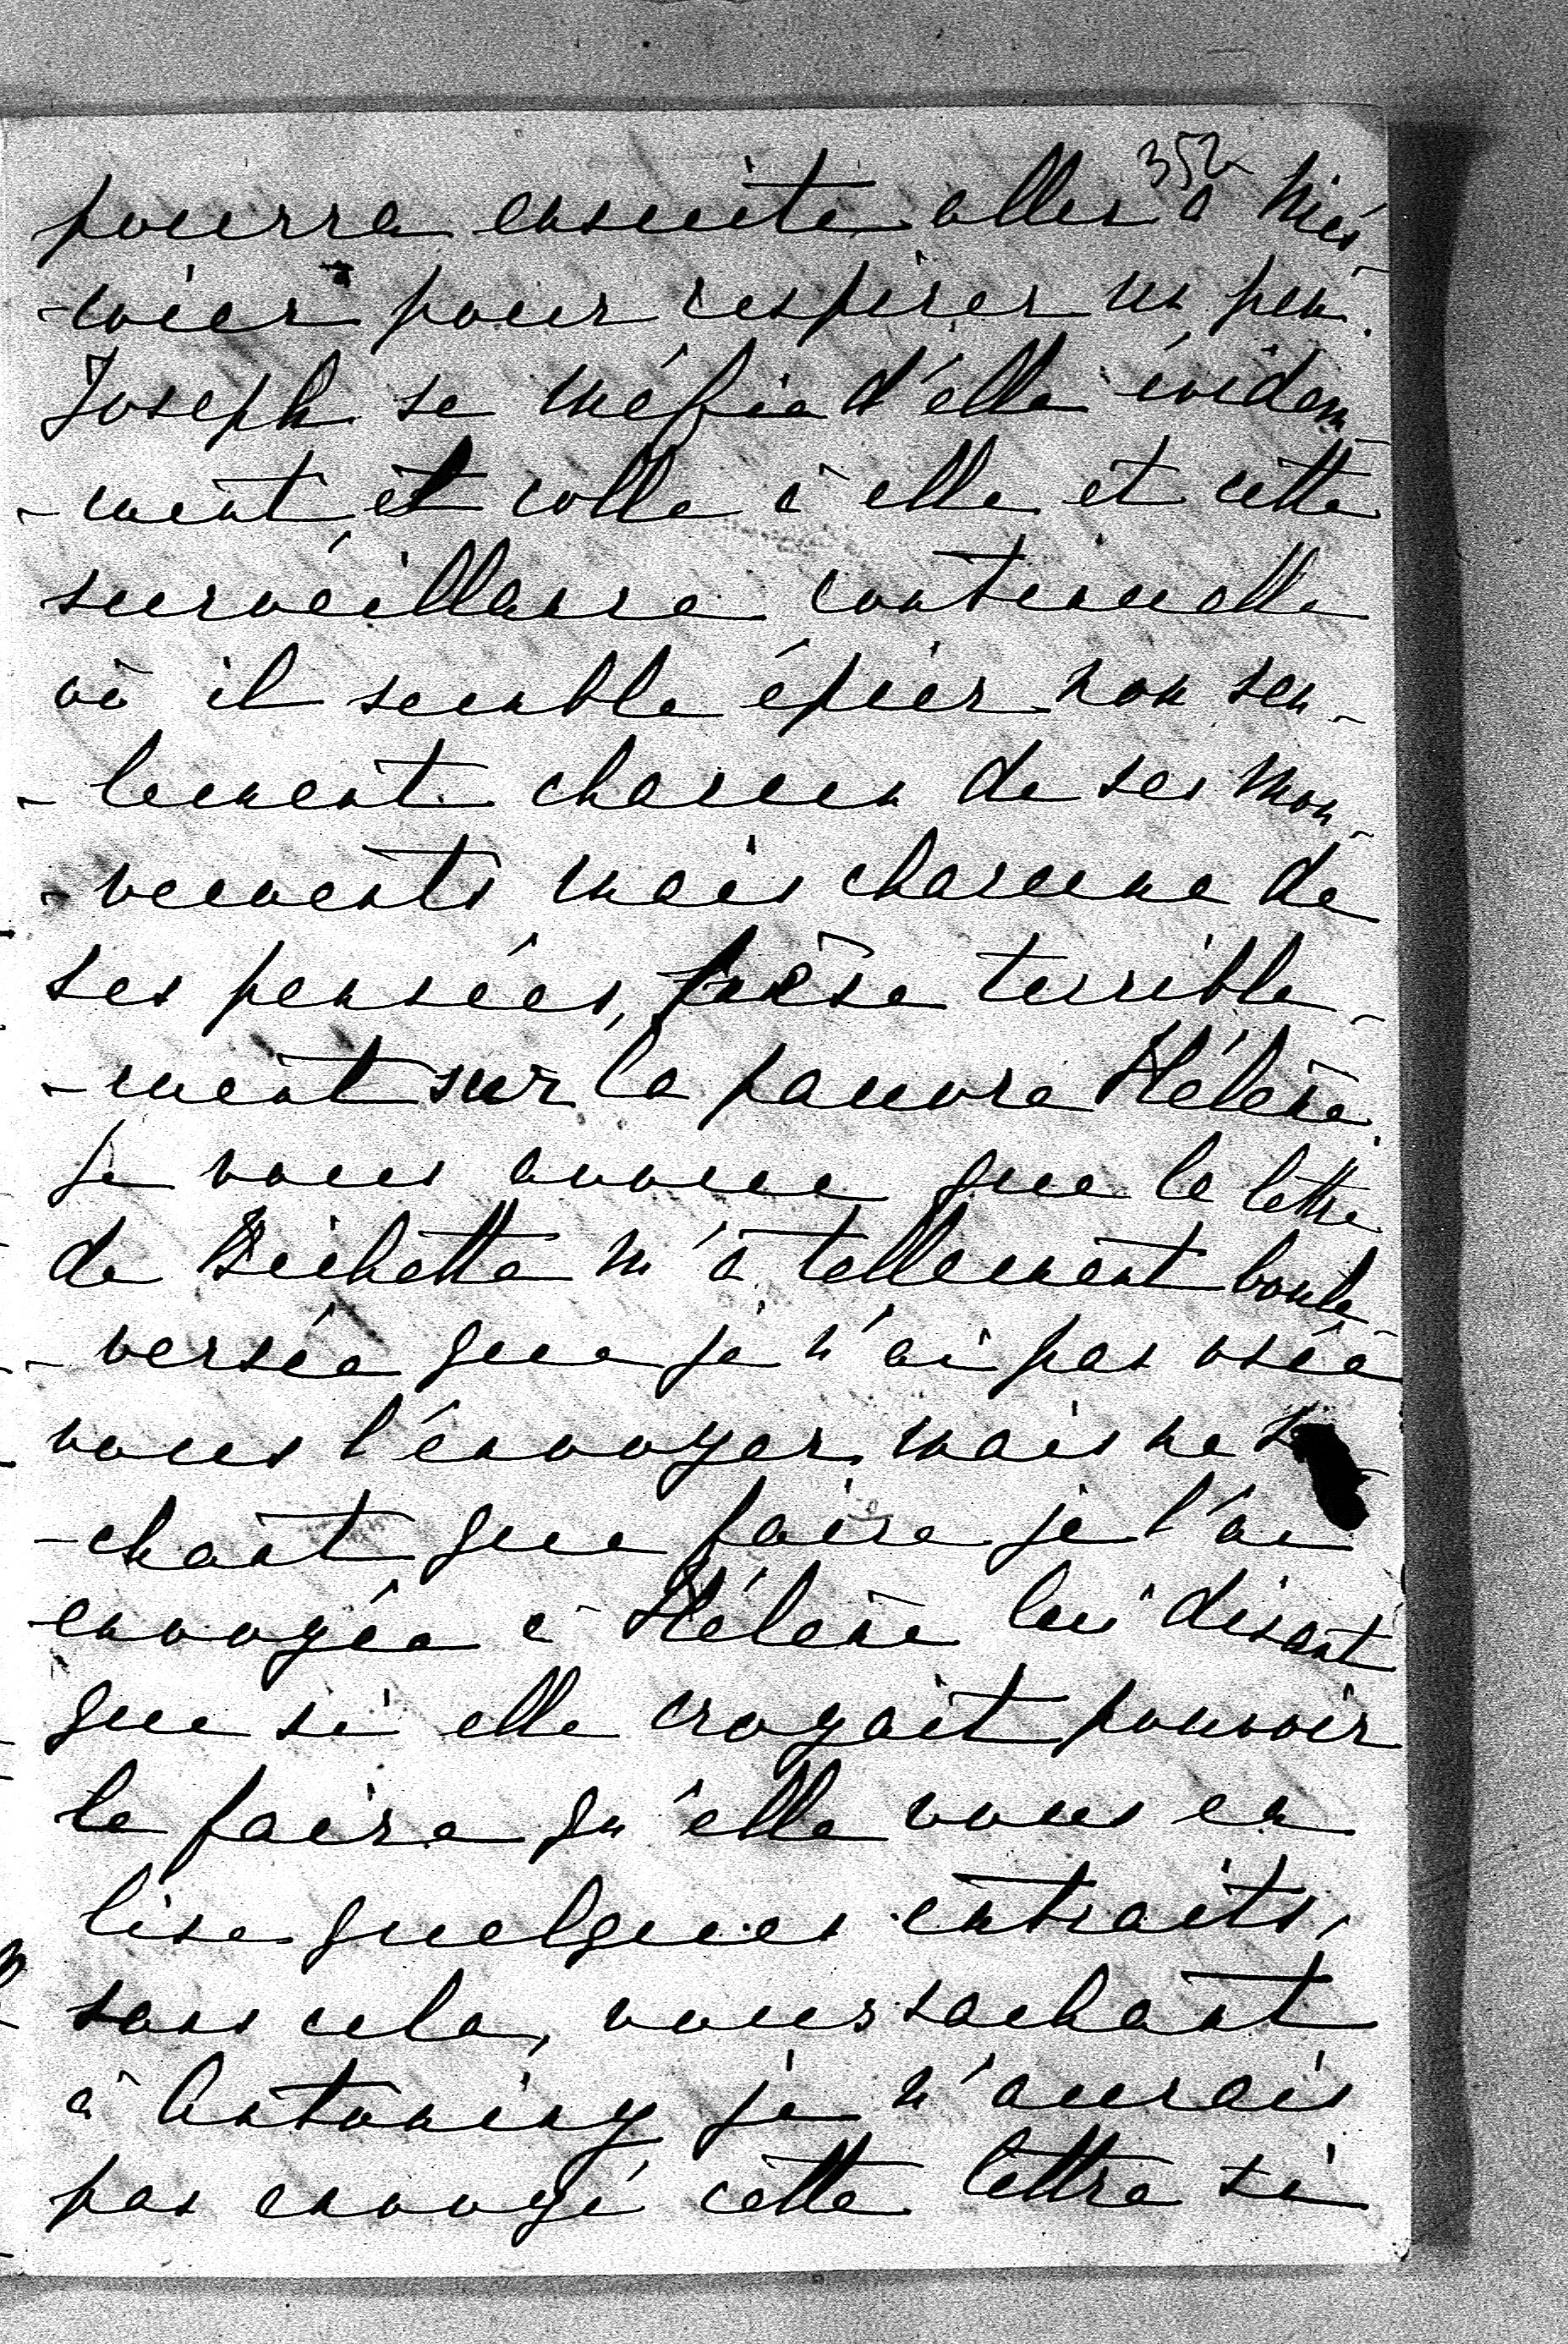 352
pourra ensuite aller à Nies-
-wier pour respirer un peu.
Joseph se méfie d'elle évidem-
-ment et colle à elle et cette
surveillance continuelle
où il semble épier non seu-
-lement chacun de ses mou-
-vements mais chacune de
ses pensées, pèse terrible-
-ment sur la pauvre Hélène.
Je vous avoue que la lettre
de Bichette m'a tellement boule-
-versée que je n'ai pas osée
vous l'envoyer, mais ne
-chant que faire je l'ai
envoyée à Hélène lui disant
que si elle croyait pouvoir
le faire qu'elle vous en
lise quelques extraits,
sans cela, vous sachant
à Antoniny je n'aurais
pas envoyé cette lettre si